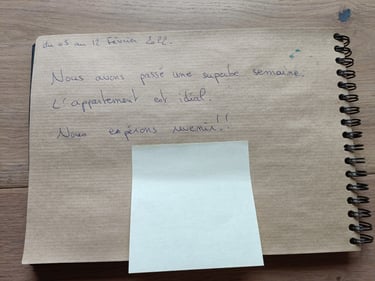 du 05 au 12 Février 2022.
Nous avons passé une superbe semaine.
L'appartement est idéal.
Nous espérons revenir!!